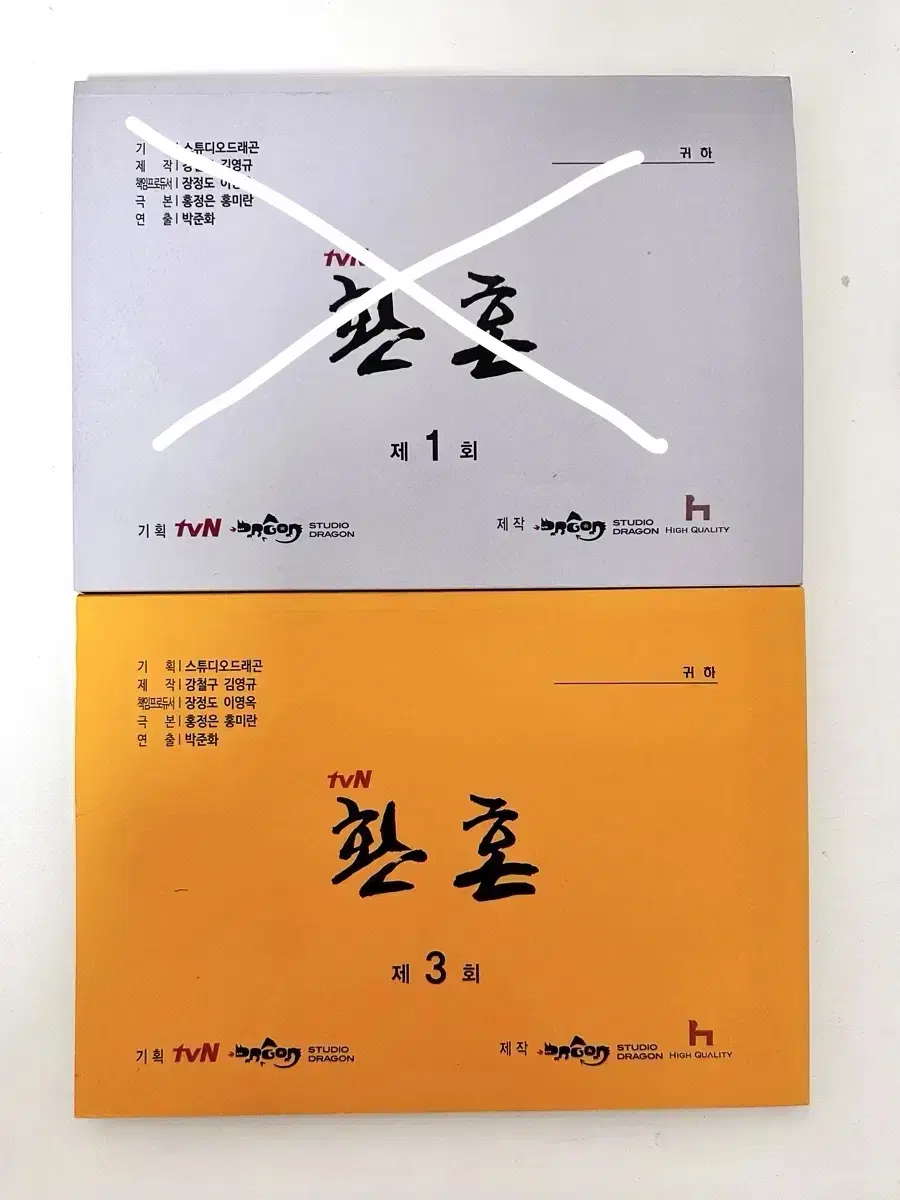 기 스튜디오드래곤
제 작 | 강철구 김영규
책임프로듀서 | 장정도 이영
극 본 | 홍정은 홍미란
연 출 | 박준화
귀 하
tvN
환 혼
제 1 회
기 획 tvN DRAGON STUDIO DRAGON
제 작 DRAGON STUDIO DRAGON HIGH QUALITY
기 획 | 스튜디오드래곤
제 작 | 강철구 김영규
책임프로듀서 | 장정도 이영옥
극 본 | 홍정은 홍미란
연 출 | 박준화
귀 하
tvN
환 혼
제 3 회
기 획 tvN DRAGON STUDIO DRAGON
제 작 DRAGON STUDIO DRAGON HIGH QUALITY